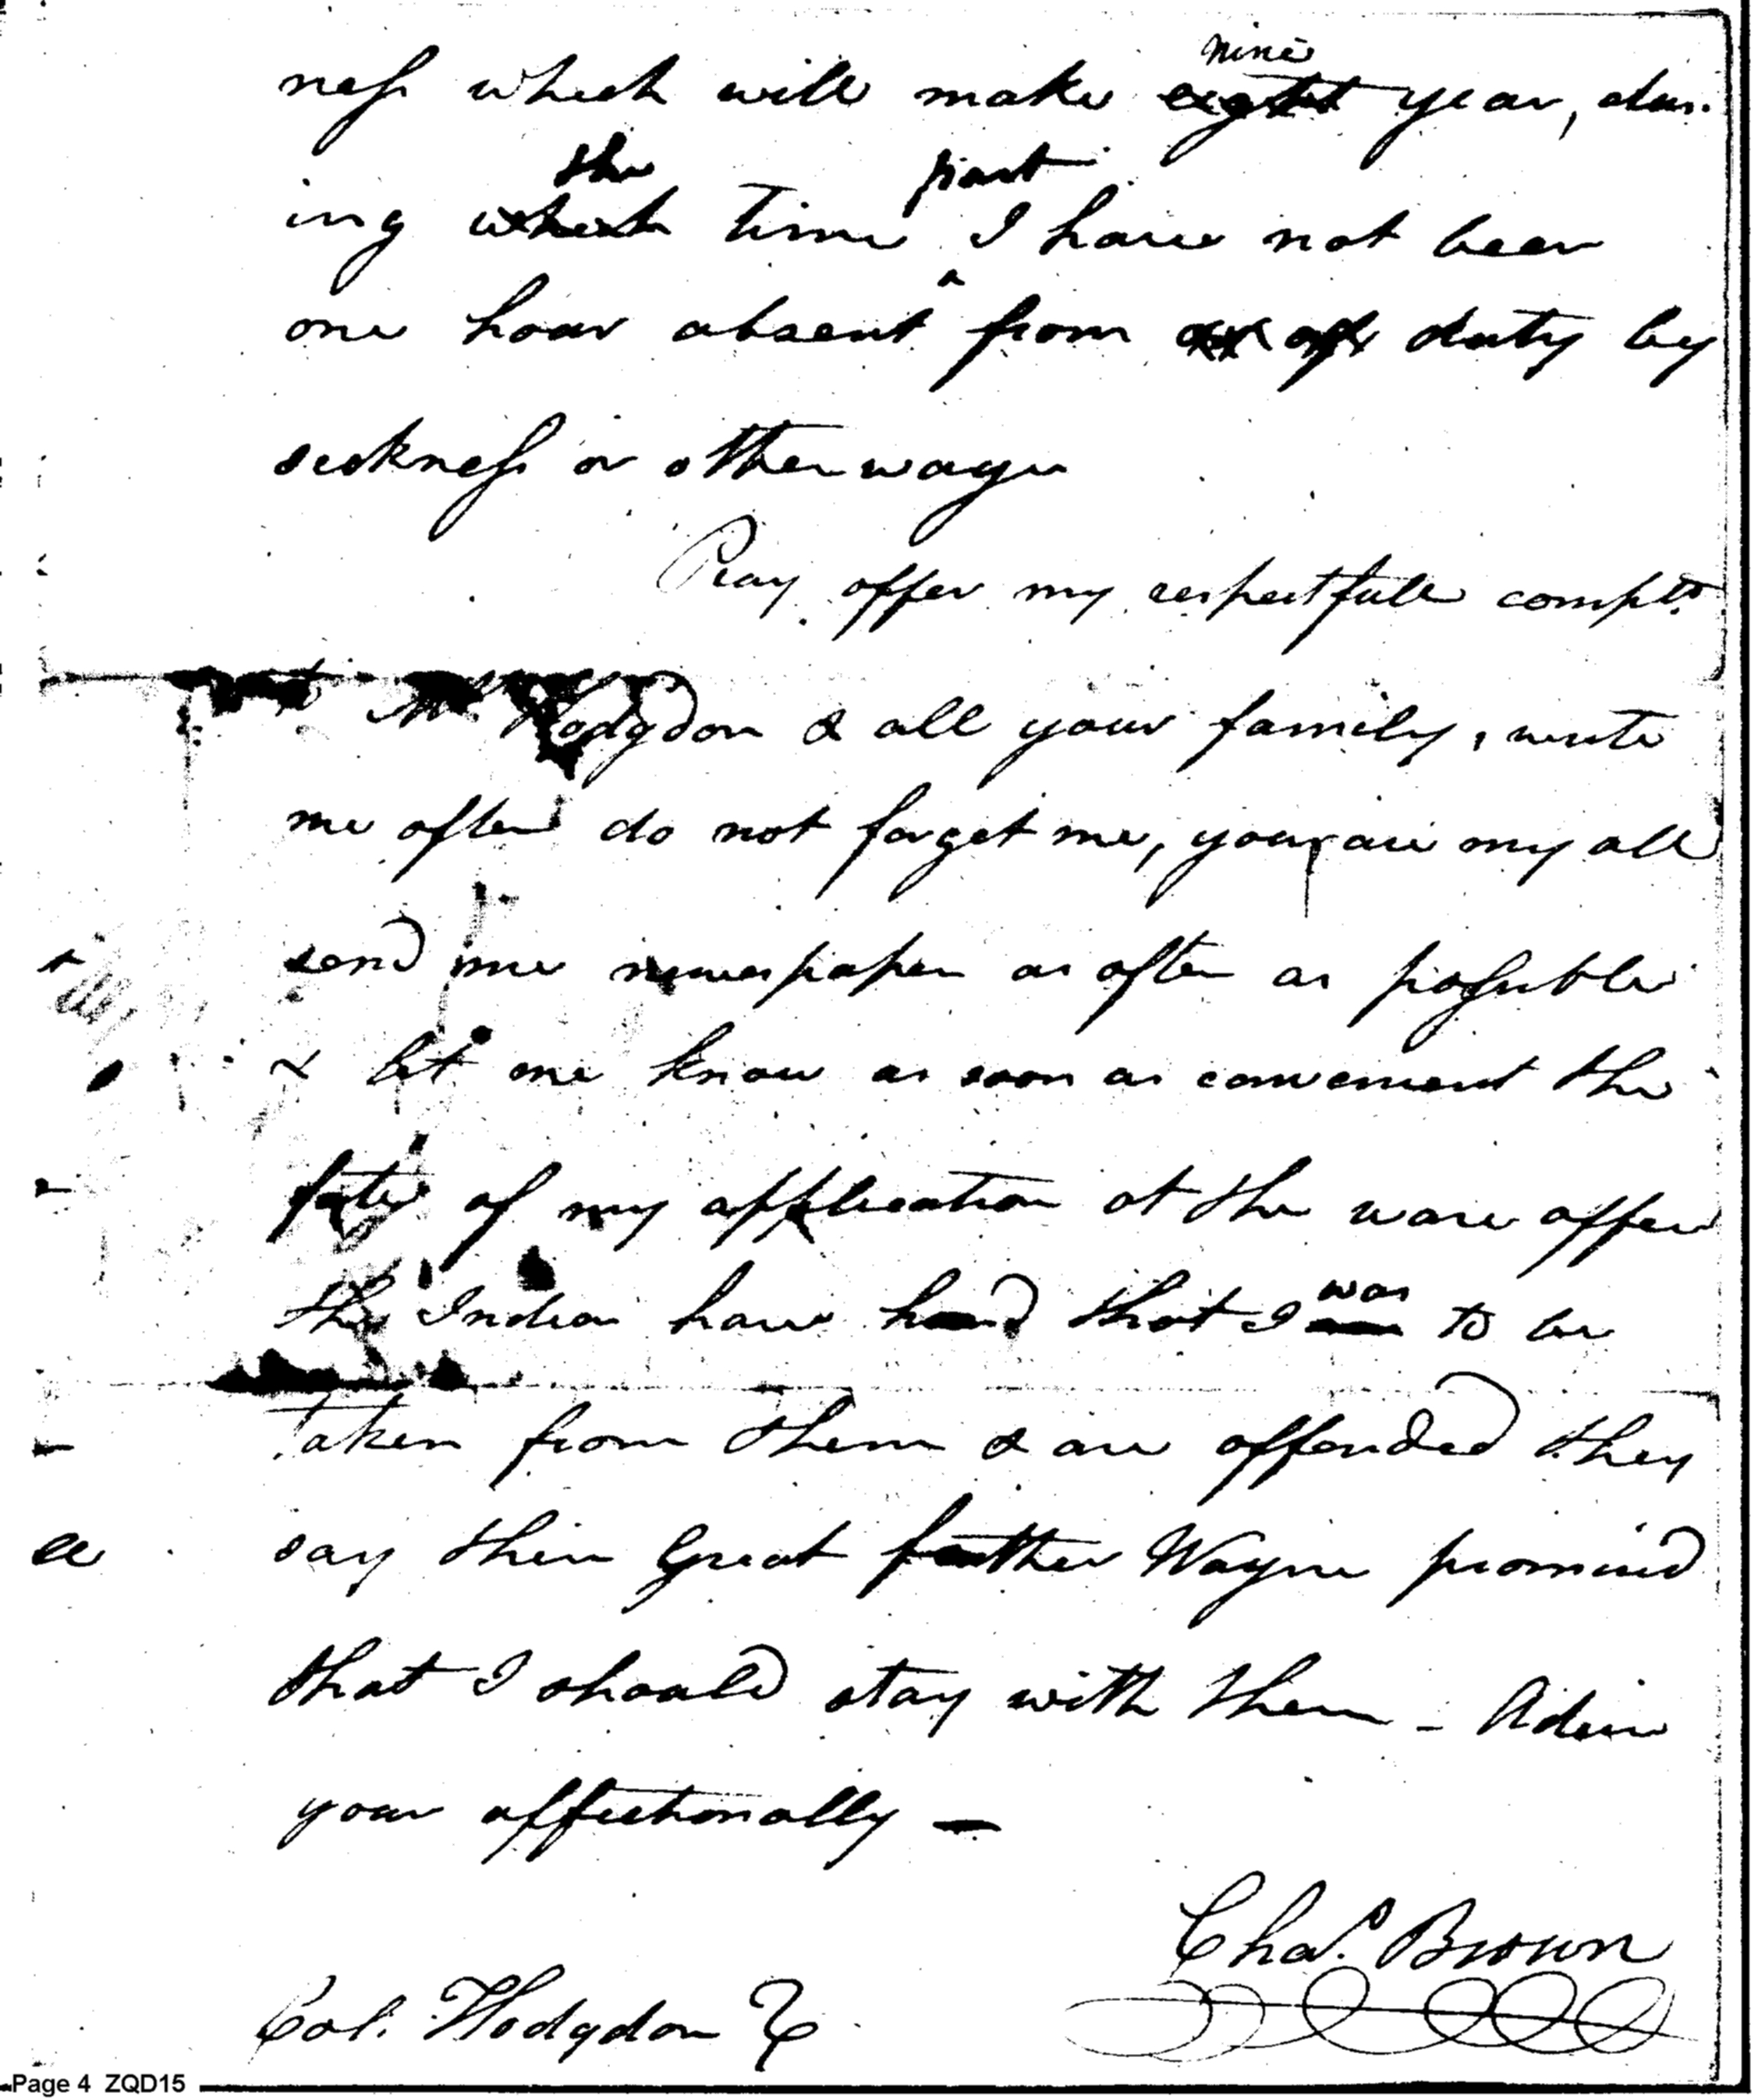 nine
ness which will make eight year, dur-
the past
ing which time I have not been
one hour absent from duty by
sickness or otherways
Pray offer my respectfull complts
to Mrs Hodgdon & all your family, write
me often do not forget me, you are my all
send me newespaper as often as possible
& let me know as soon as convenient the
fate of my application at the ware office
was
the Indian have heard that I am to be
taken from them & are offended they
say their Great father Wayne promised
that I should stay with them - Adieu
your affectionally -
Chas. Brown
Col. Hodgdon
Page 4 ZQD15